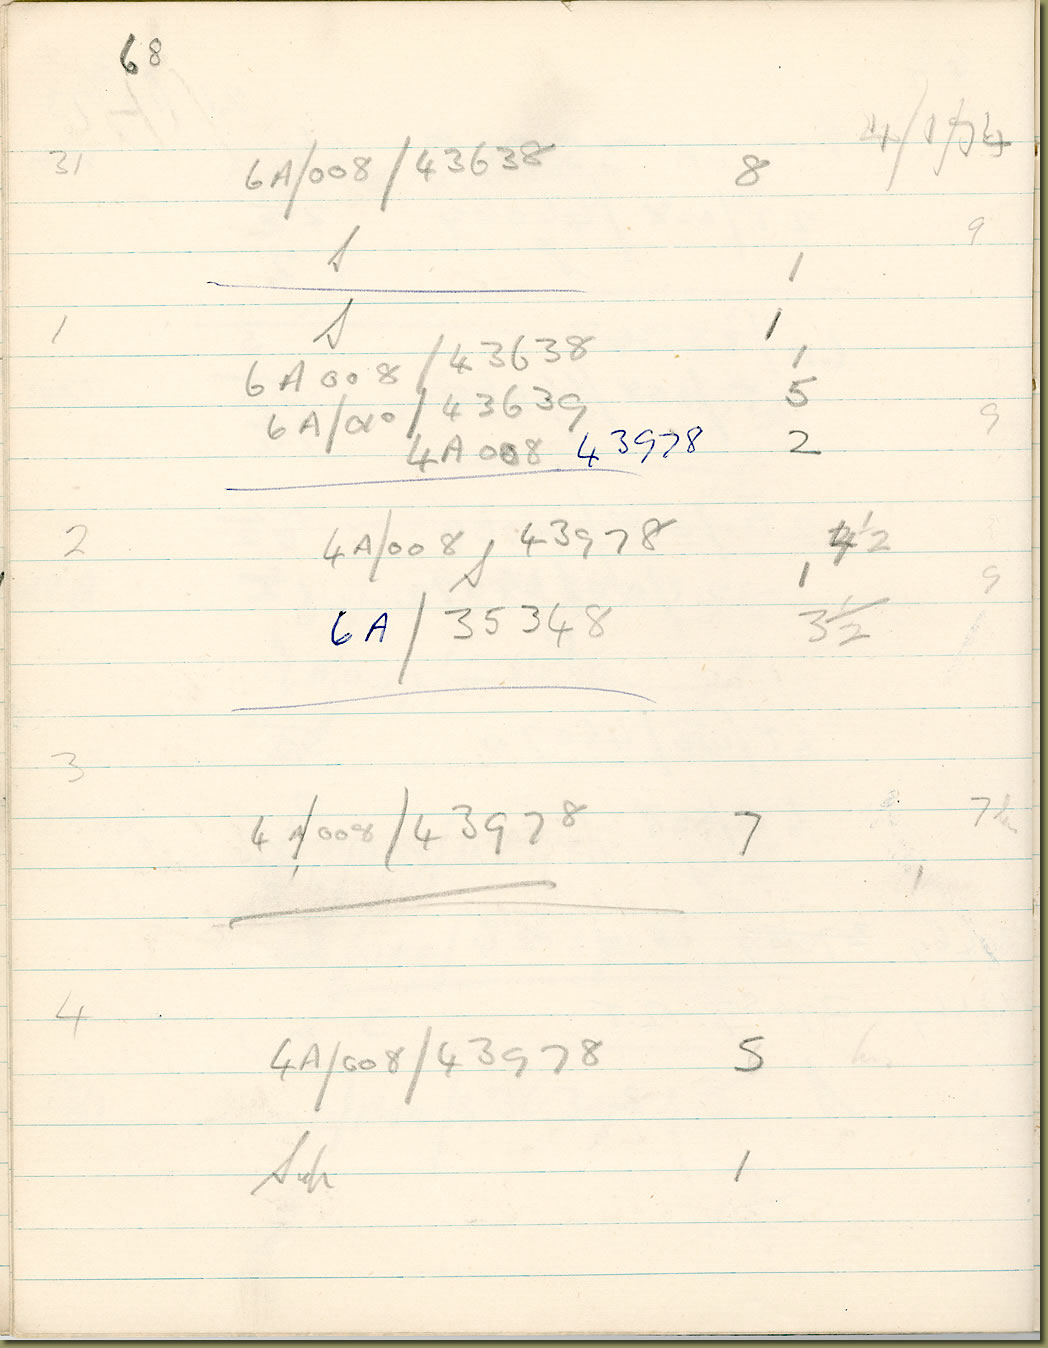 68
4/1/74
31 6A/008/43638 8
9
S 1
1 S 1
6A008/43638 1
6A/010/43639 5 9
4A008 43978 2
2 4A/008 43978 4½
S 1 9
6A/35348 3½
3
4A/008/43978 7 7
4
4A/008/43978 5
Sup 1